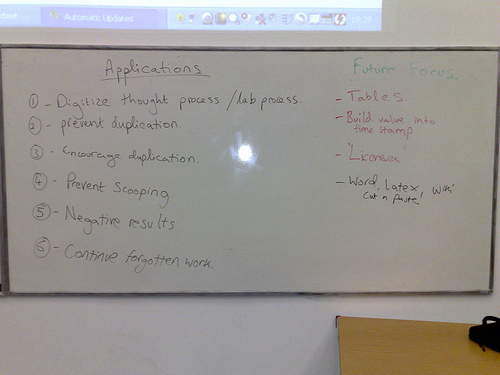 Automatic Updates
19:39
Applications
① - Digitize thought process / lab process.
② - prevent duplication.
③ - Encourage duplication.
④ - Prevent Scooping
⑤ - Negative results
⑥ - Continue forgotten work.
Future Focus
- Tables
- Build value into
time stamp
- Word, Latex, Wiki
Cut n Paste!